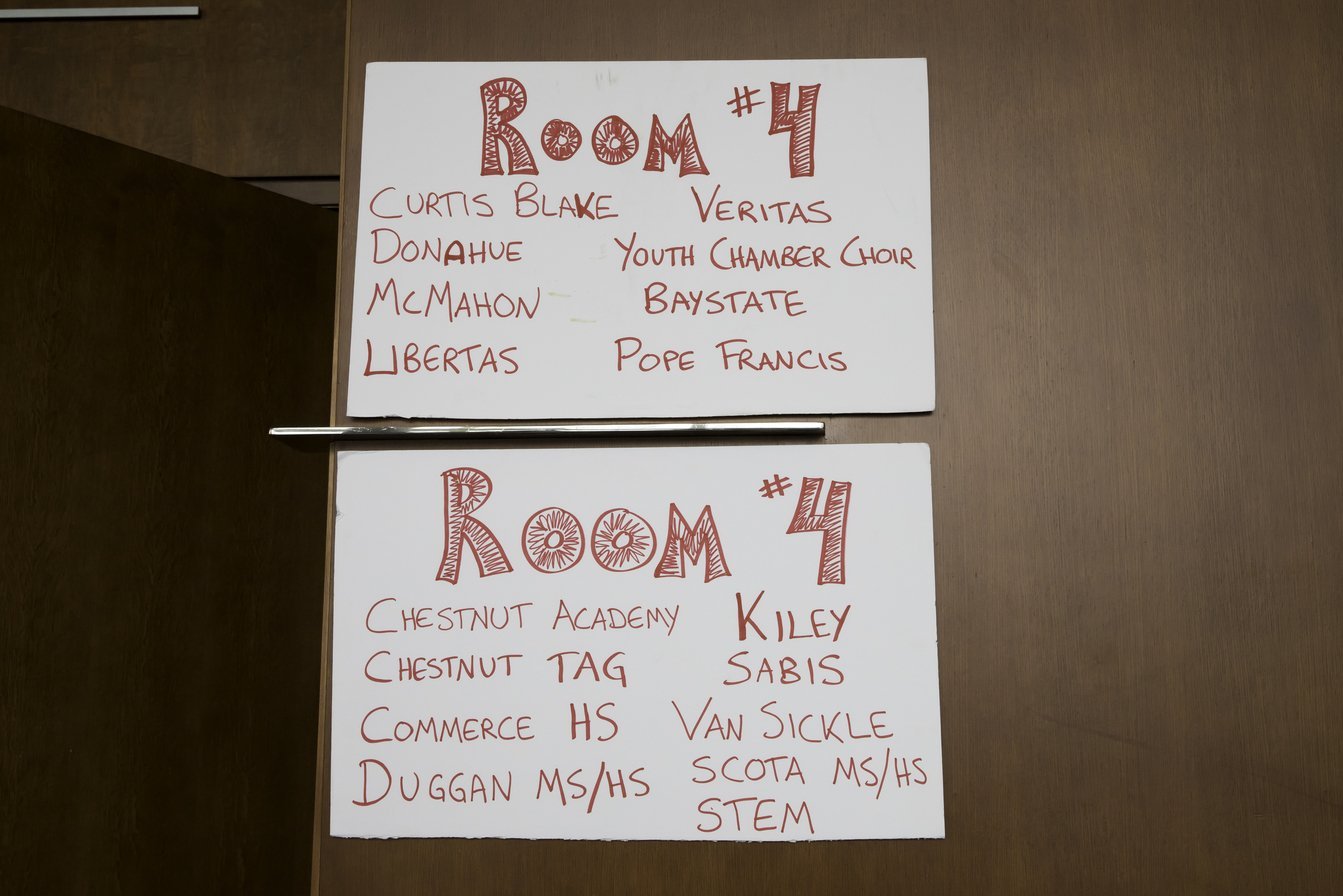 ROOM #4
CURTIS BLAKE VERITAS
DONAHUE YOUTH CHAMBER CHOIR
MCMAHON BAYSTATE
LIBERTAS POPE FRANCIS
ROOM #4
CHESTNUT ACADEMY KILEY
CHESTNUT TAG SABIS
COMMERCE HS VAN SICKLE
DUGGAN MS/HS SCOTA MS/HS
STEM